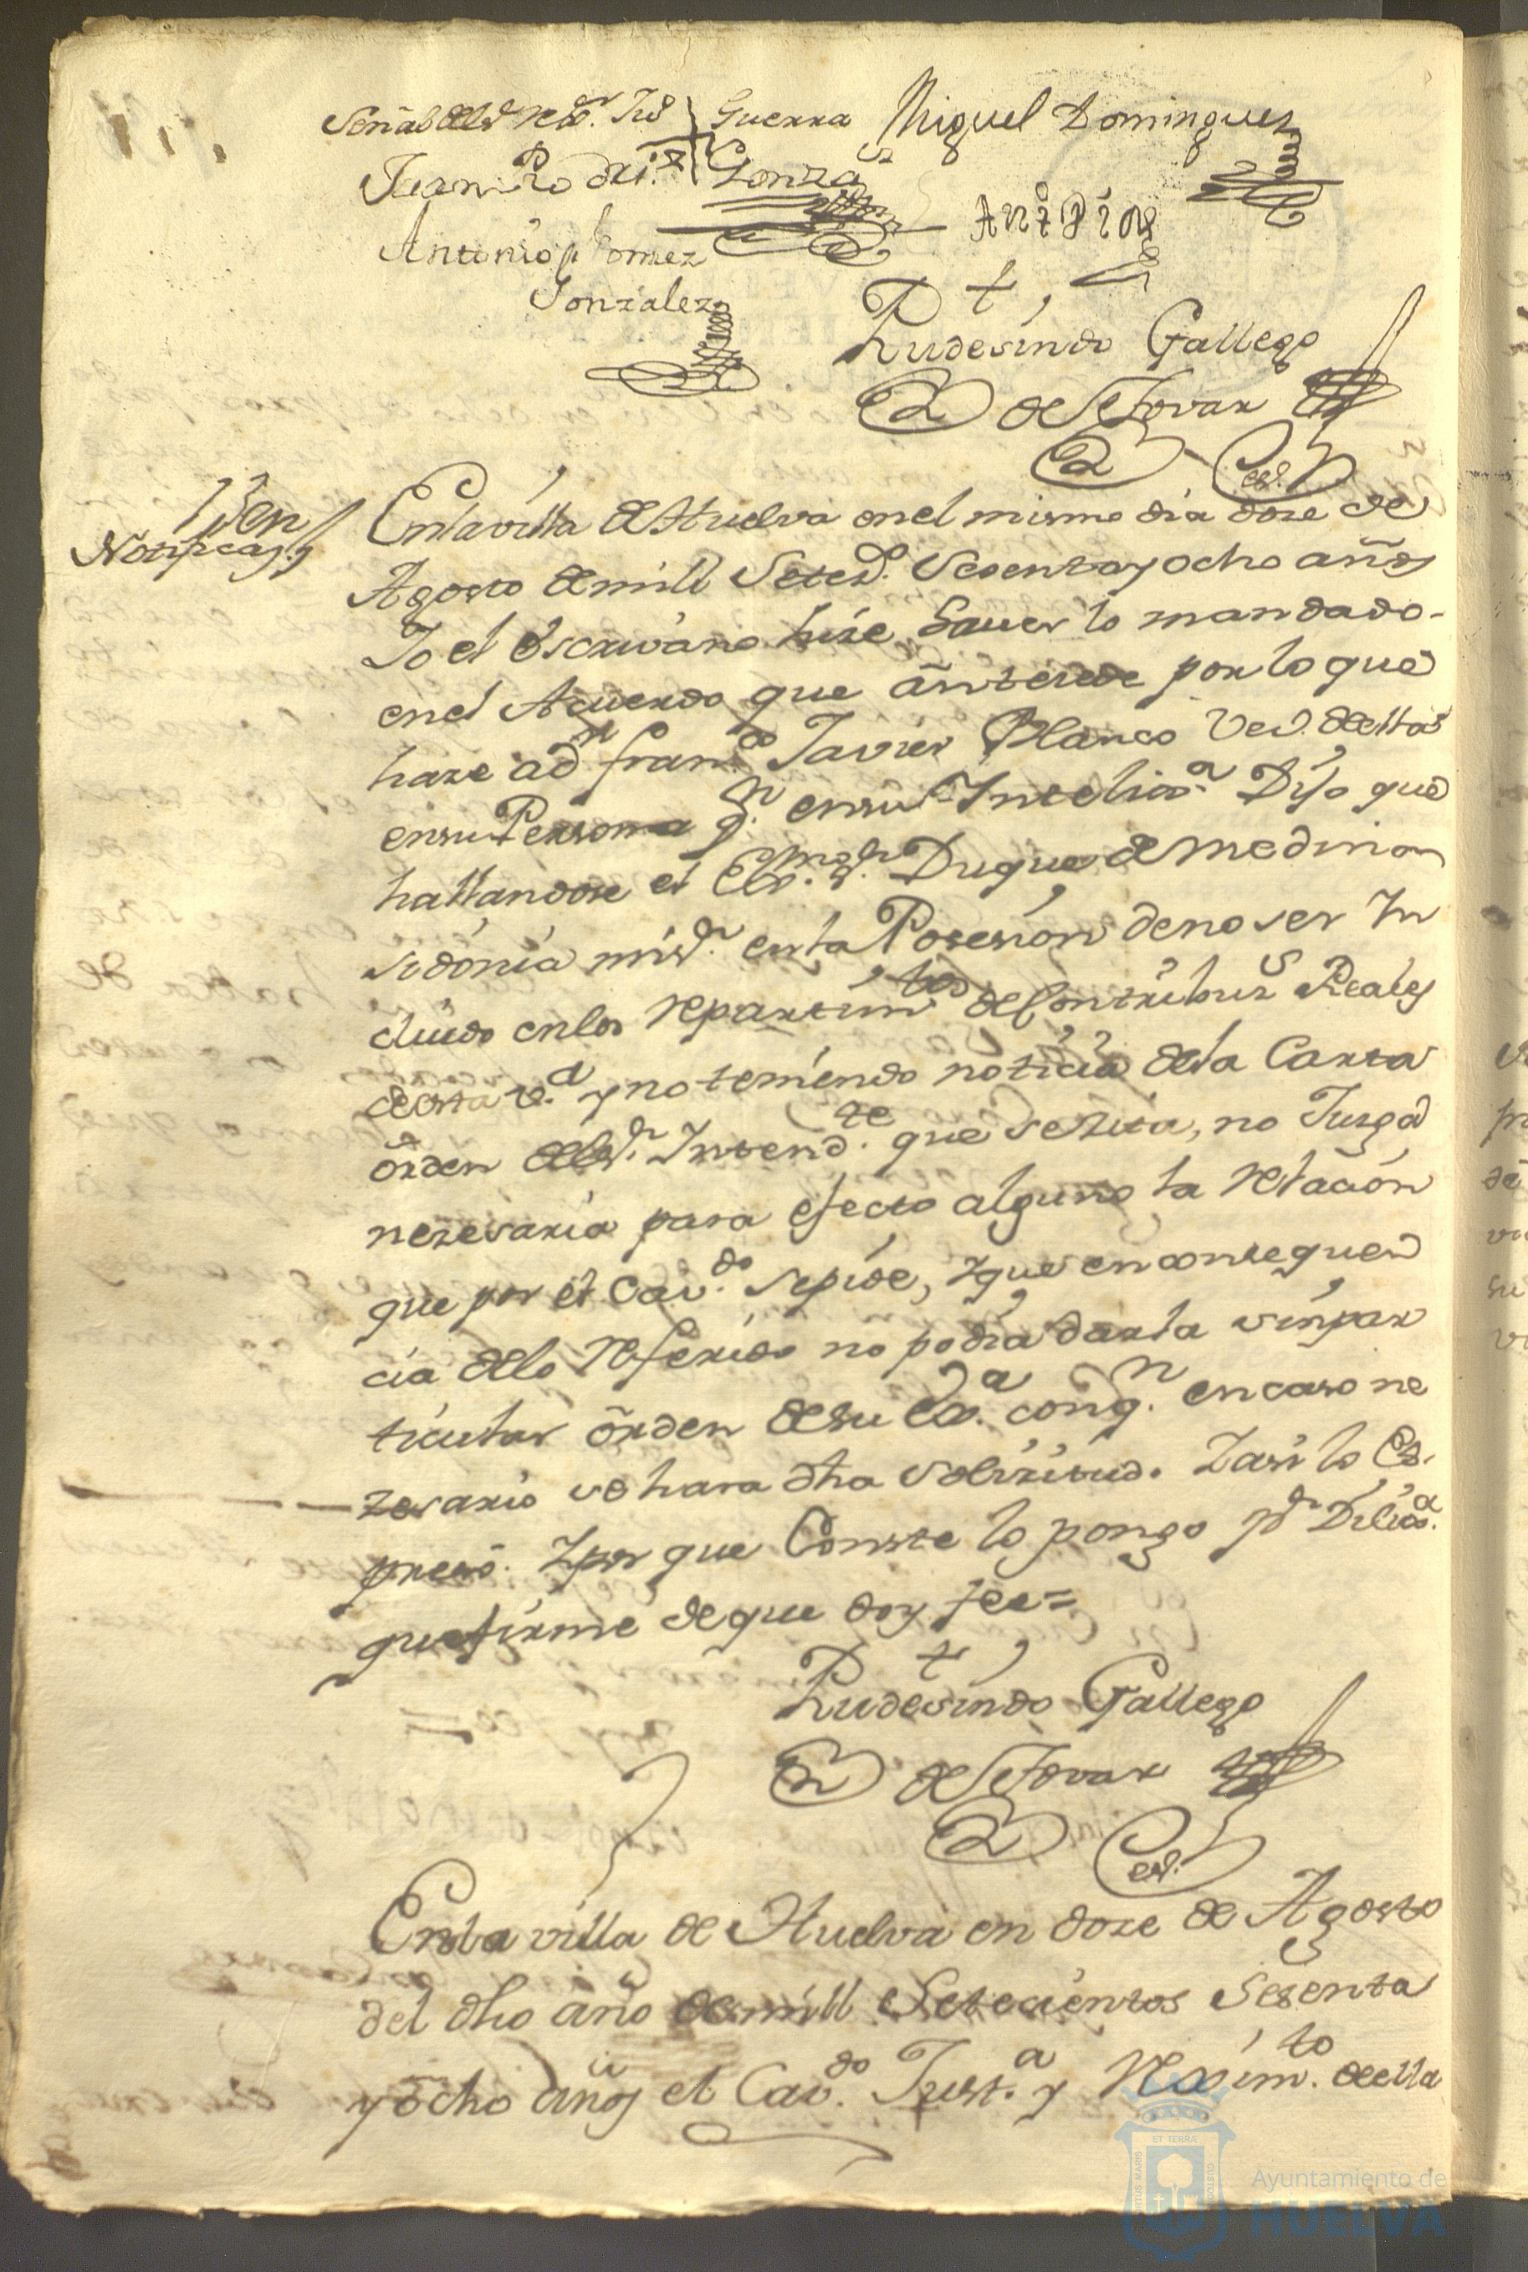 Señal del Sr. Rexr. Jud Guerra Miguel Dominguez
Juan Po. Gonza
Antt Dias
Antonio Gomez
Gonzalez
Rudesindo Gallego
de Tovar
esno.
Iden
Notificazn
En la villa de Huelva en el mismo dia doze de
Agosto de mill Setezs. Sesenta y ocho años
Yo el escrivano hize Saver lo mandado
en el Acuerdo que antecede por lo que
haze a Dn franco Javier Blanco Vecº. de ella
en su Persona qn en su Inteliga Dijo que
hallandose el Exmo. Sr. Duque de Medina
sidonia mi sr. en la Posesion de no ser In
cluido en los repartimtos de Contribuzs Reales
de esta va. y no teniendo noticia de la Carta
orden del Sr. Intendte. que se zita, no Juzga
nezesaria para efecto alguno la relacion
que por el Cavdo. se pide, y que en consequen
cia de lo referido no podia darla sin par
ticular orden de su Exa. con qn en caso ne
zesario se hara dha solizitud. Y asi lo Es-
preso. Y por que Conste lo pongo pr Diliga
que firme de que doy fee=
Rudesindo Gallego
de Tovar
esno.
En la villa de Huelva en doze de Agosto
del dho año de mill Setecientos Sesenta
y ocho años el Cavdo. Justa. y Reximto. de ella
ET TERRÆ
PORTUS MARIS
CUSTODIA
Ayuntamiento de
HUELVA